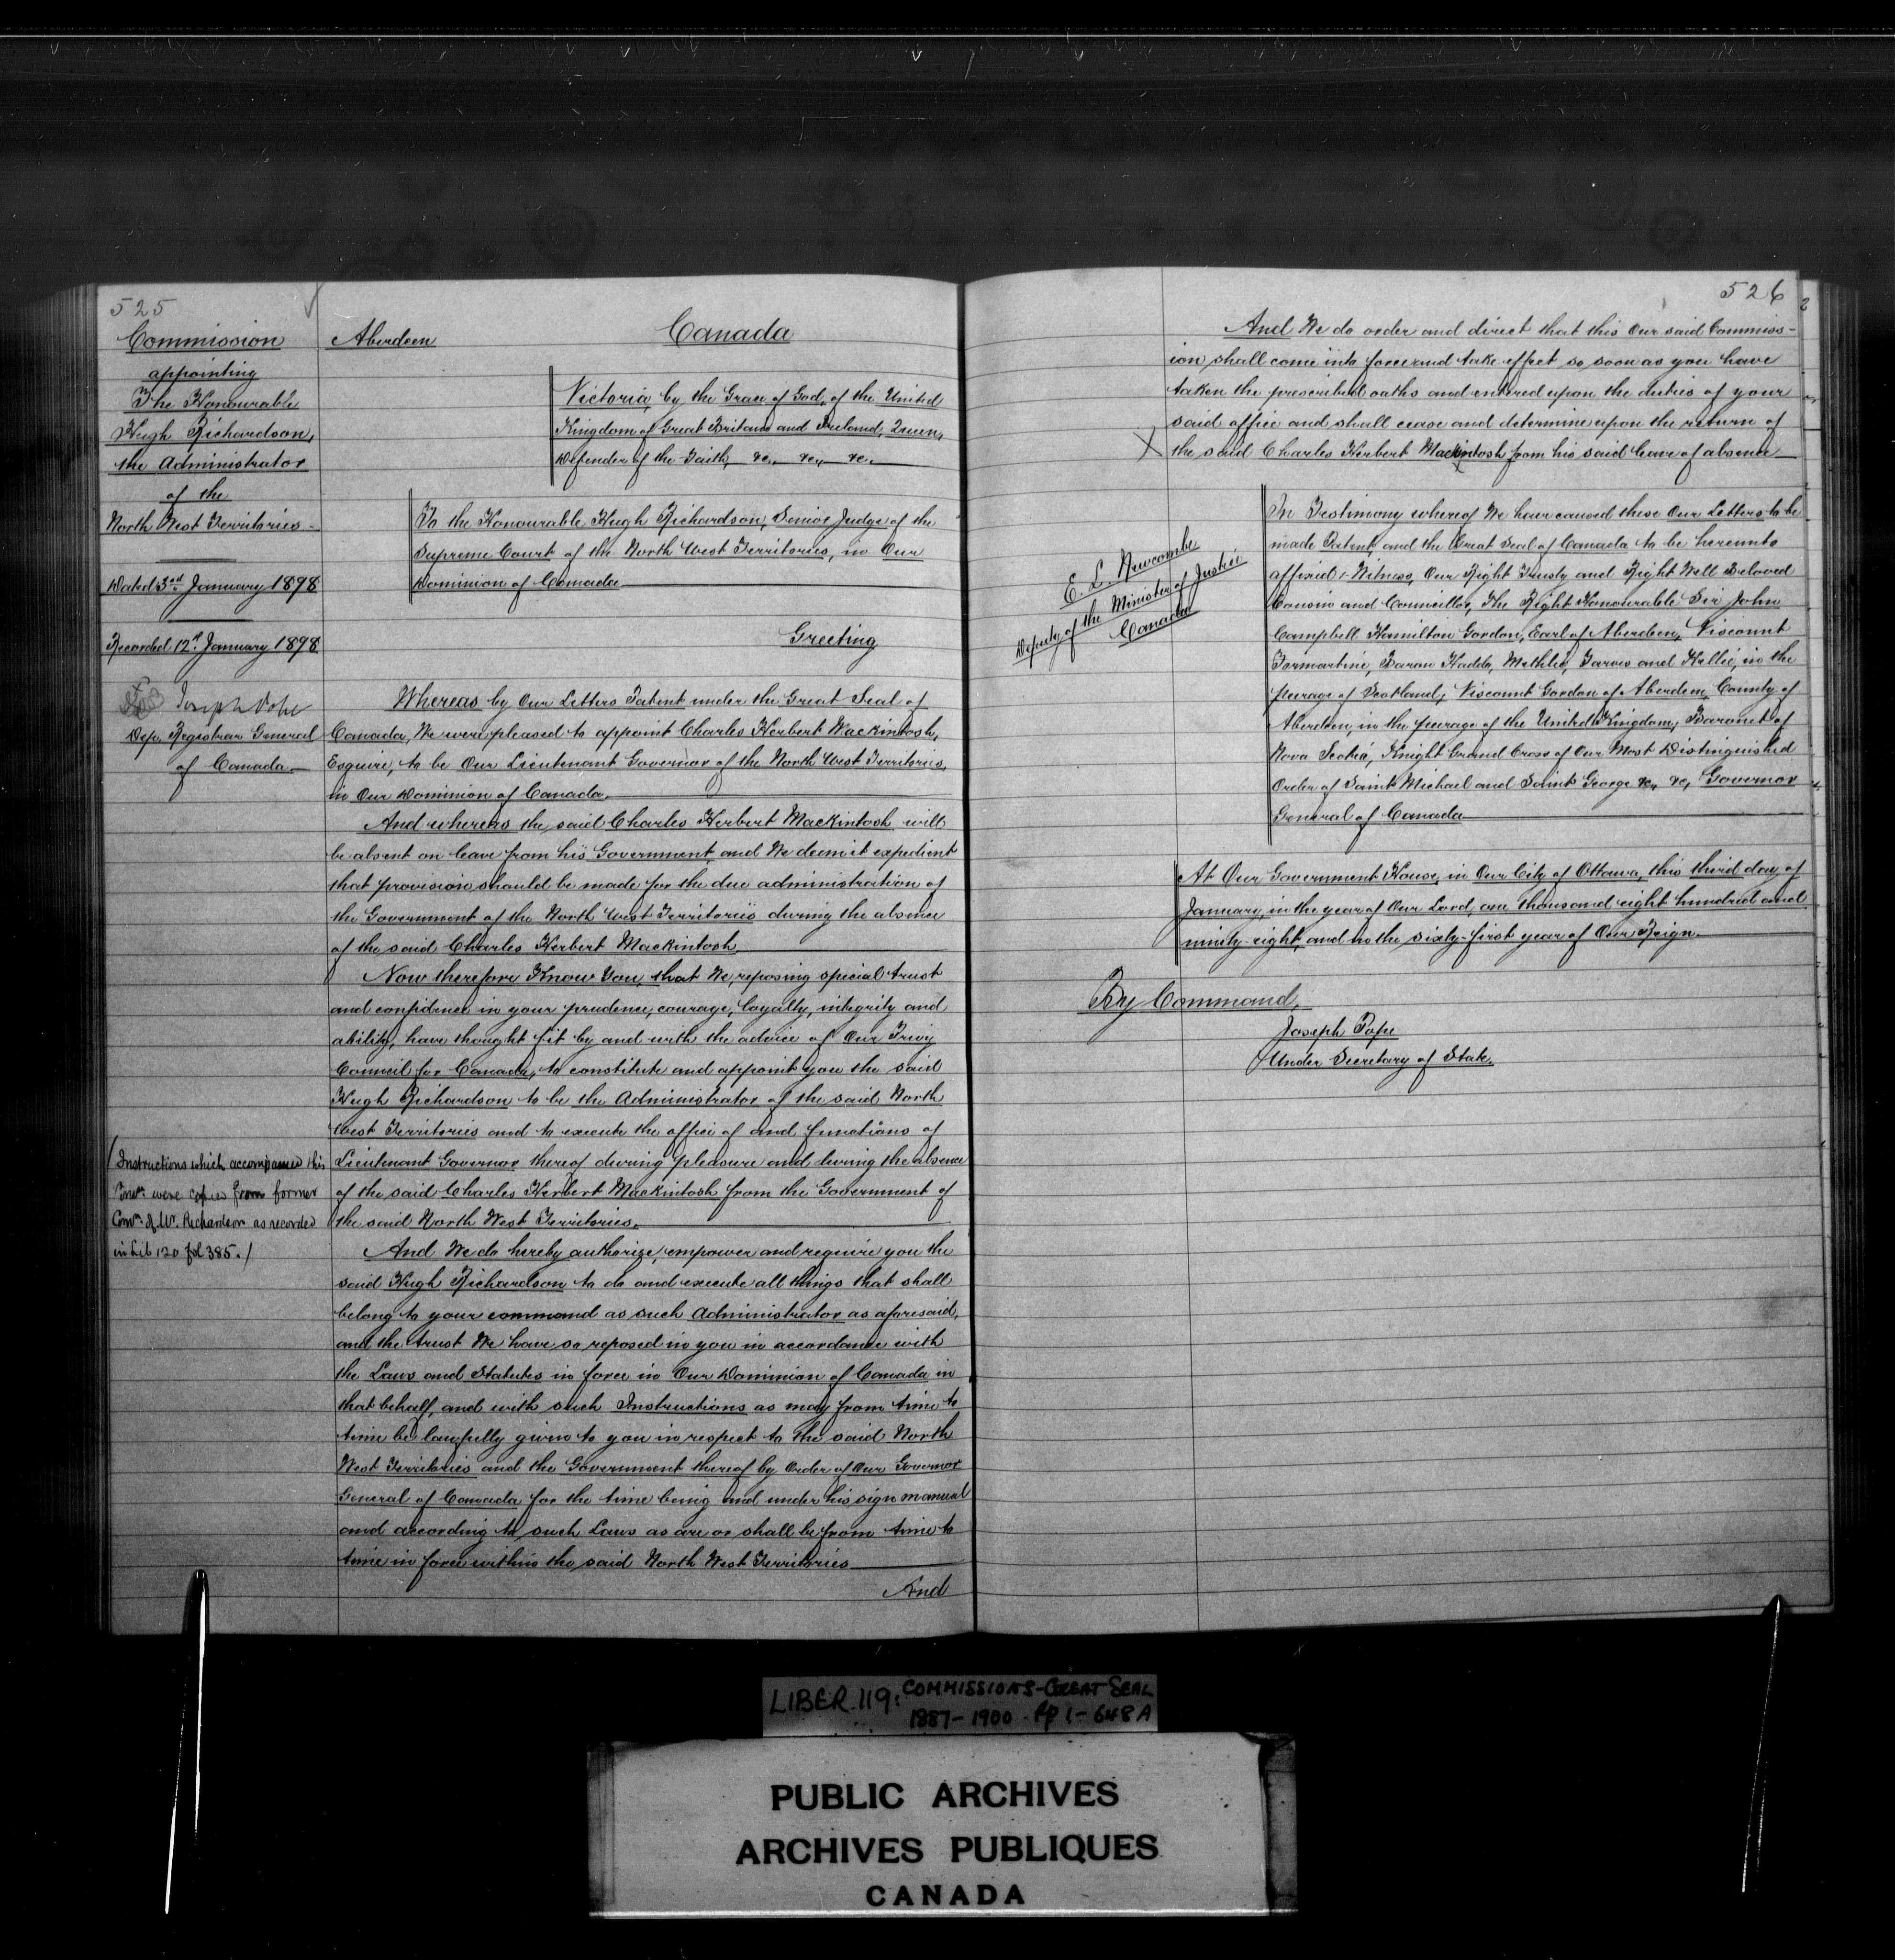 525
Commission
appointing
The Honourable
Hugh Richardson,
the Administrator
of the
North West Territories -
Dated 3rd January 1898
Recorded 12th January 1898
Joseph Pope
Dep. Registrar General
of Canada
(Instructions which accompanied this
Comn. were copies from former
Comn. of Mr. Richardson as recorded
in Lib 120 fol 385.)
Aberdeen
Canada
Victoria, by the Grace of God, of the United
Kingdom of Great Britain and Ireland, Queen,
Defender of the Faith, &c., &c., &c.,
To the Honourable Hugh Richardson, Senior Judge of the
Supreme Court of the North West Territories, in Our
Dominion of Canada
Greeting
Whereas by Our Letters Patent under the Great Seal of
Canada, We were pleased to appoint Charles Herbert Mackintosh,
Esquire, to be Our Lieutenant Governor of the North West Territories,
in Our Dominion of Canada.
And whereas the said Charles Herbert Mackintosh will
be absent on leave from his Government, and We deem it expedient
that provision should be made for the due administration of
the Government of the North West Territories during the absence
of the said Charles Herbert Mackintosh
Now therefore Know You, that We, reposing special trust
and confidence in your prudence, courage, loyalty, integrity and
ability, have thought fit by and with the advice of Our Privy
Council for Canada, to constitute and appoint you the said
Hugh Richardson to be the Administrator of the said North
West Territories and to execute the office of and functions of
Lieutenant Governor thereof during pleasure and during the absence
of the said Charles Herbert Mackintosh from the Government of
the said North West Territories.
And We do hereby authorize, empower and require you the
said Hugh Richardson to do and execute all things that shall
belong to your command as such Administrator as aforesaid,
and the trust We have so reposed in you in accordance with
the Laws and Statutes in force in Our Dominion of Canada in
that behalf, and with such Instructions as may from time to
time be lawfully given to you in respect to the said North
West Territories and the Government thereof by Order of Our Governor
General of Canada for the time being and under his sign manual
and according to such Laws as are or shall be from time to
time in force within the said North West Territories
And
526
And We do order and direct that this Our said Commiss-
ion shall come into force and take effect so soon as you have
taken the prescribed oaths and entered upon the duties of your
said office and shall cease and determine upon the return of
X the said Charles Herbert Mackintosh from his said leave of absence
E. L. Newcombe
Deputy of the Minister of Justice
Canada
In Testimony whereof We have caused these Our Letters to be
made Patent, and the Great Seal of Canada to be hereunto
affixed: Witness, Our Right Trusty and Right Well Beloved
Cousin and Councillor, The Right Honourable Sir John
Campbell Hamilton Gordon, Earl of Aberdeen, Viscount
Formartine, Baron Haddo, Methlic, Tarves and Kellie, in the
peerage of Scotland; Viscount Gordon of Aberdeen, County of
Aberdeen, in the peerage of the United Kingdom; Baronet of
Nova Scotia, Knight Grand Cross of Our Most Distinguished
Order of Saint Michael and Saint George &c., &c., Governor
General of Canada
At Our Government House, in Our City of Ottawa, this third day of
January, in the year of Our Lord, one thousand eight hundred and
ninety-eight, and in the sixty-first year of Our Reign.
By Command,
Joseph Pope
Under Secretary of State.
LIBER.119: COMMISSIONS-GREAT SEAL
1887-1900 - Pp 1-648A
PUBLIC ARCHIVES
ARCHIVES PUBLIQUES
CANADA